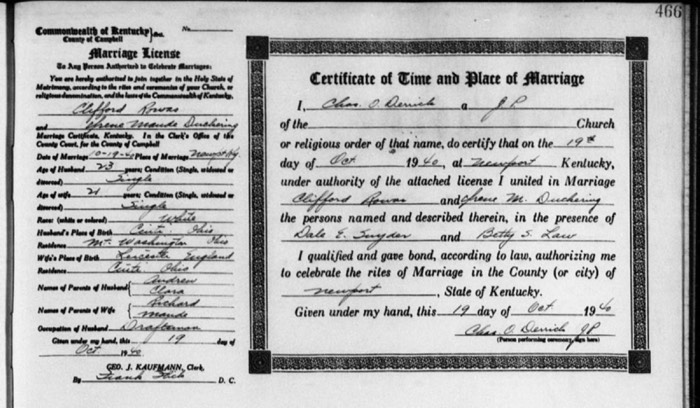 466
Commonwealth of Kentucky } Sct.
County of Campbell
No.
Marriage License
To Any Person Authorized to Celebrate Marriages:
You are hereby authorized to join together in the Holy State of
Matrimony, according to the rites and ceremonies of your Church, or
religious denomination, and the laws of the Commonwealth of Kentucky,
Clifford Rowas
and Irene Maude Duchering
Marriage Certificate, Kentucky. In the Clerk's Office of the
County Court, for the County of Campbell
Date of Marriage 10-19-40 Place of Marriage Newport Ky.
Age of Husband 23 years; Condition (Single, widowed or
divorced) Single
Age of wife 21 years; Condition (Single, widowed or
divorced) Single
Race: (white or colored) White
Husband's Place of Birth Cinti, Ohio
Residence Mt. Washington Ohio
Wife's Place of Birth Leicester England
Residence Cinti, Ohio
Names of Parents of Husband { Andrew
Clara
Names of Parents of Wife { Richard
Maude
Occupation of Husband Draftsman
Given under my hand, this 19 day of
Oct 1940
GEO. J. KAUFMANN, Clerk,
By Frank D. C.
Certificate of Time and Place of Marriage
I, Chas. O. Derrick a J P
of the Church
or religious order of that name, do certify that on the 19th
day of Oct 1940, at Newport Kentucky,
under authority of the attached license I united in Marriage
Clifford Rowas and Irene M. Duchering
the persons named and described therein, in the presence of
Dale E. Snyder and Betty S. Law
I qualified and gave bond, according to law, authorizing me
to celebrate the rites of Marriage in the County (or city) of
Newport, State of Kentucky.
Given under my hand, this 19 day of Oct 1940
Chas. O. Derrick JP
(Person performing ceremony, sign here)